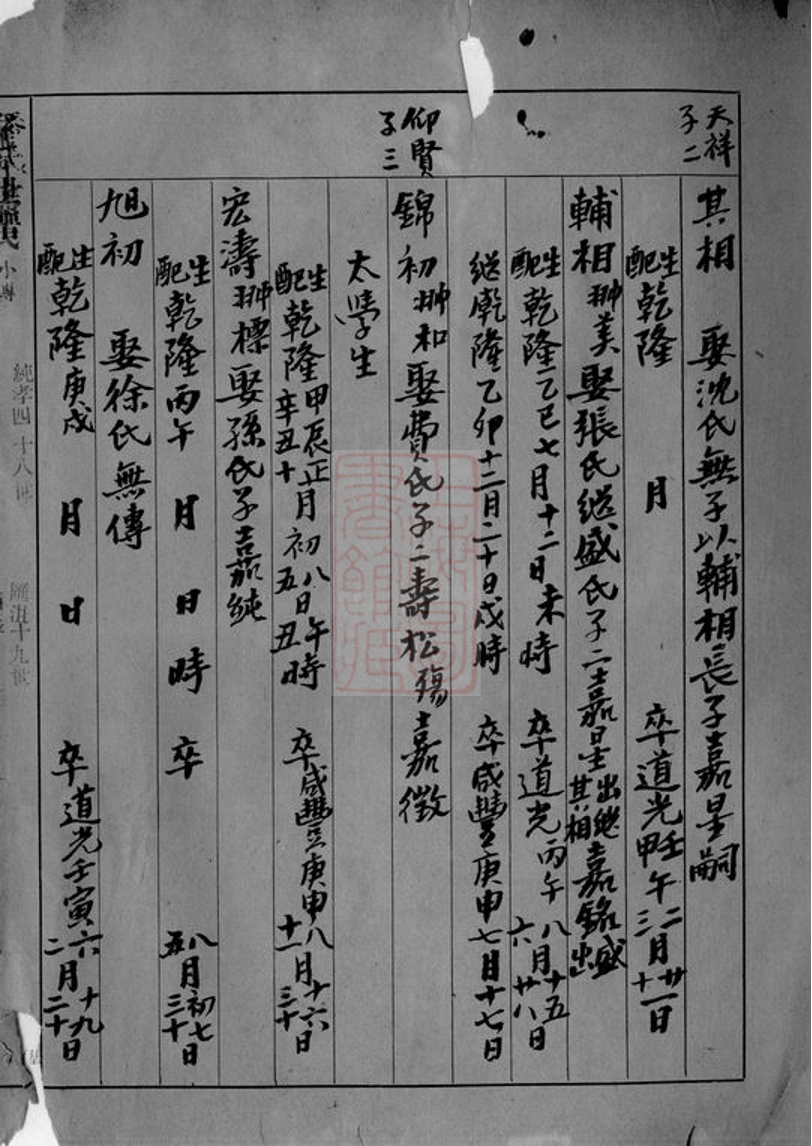 天祥
子二
其相 娶沈氏無子以輔相長子嘉星嗣
生配乾隆 月 卒道光壬甲午二三月廿一十日
輔相 翀美 娶張氏繼盛氏子二嘉星出繼其相嘉銘盛出
生配乾隆乙巳七月十二日未時 卒道光丙午八六月十五廿八日
繼乾隆乙卯十二月二十日戌時 卒咸豐庚申七月十七日
仰賢
子三
錦初 翀和 娶費氏子二壽松殤嘉徵
太學生
生配乾隆甲辰辛丑正十月初八五日午丑時 卒咸豐庚申八十一月十六三十日
宏濤 翀標 娶孫氏子嘉純
生配乾隆丙午 月 日 時 卒 八五月初七三十日
旭初 娶徐氏無傳
生配乾隆庚戌 月 日 卒道光壬寅六二月十九二十日
小傳
純孝四十八世
匯沮十九世